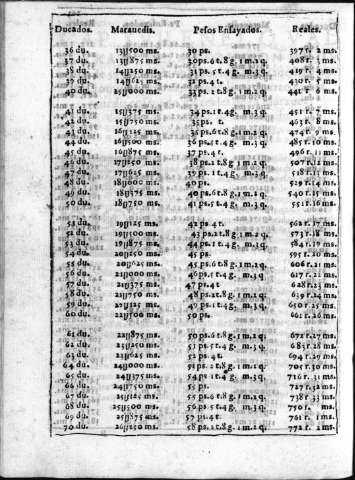 Ducados. Marauedis. Pesos Ensayados. Reales.
36 du. 13||500 ms. 30 ps. 397 r. 2 ms.
37 du. 13||875 ms. 30 ps. 6 t. 8 g. 1 m. 2 q. 408 r. 3 ms.
38 du. 14||250 ms. 31 ps. 5 t. 4 g. m. 3 q. 419 r. 4 ms.
39 du. 14||625 ms. 32 ps. 4 t. 430 r. 5 ms.
40 du. 15||000 ms. 33 ps. 2 t. 8 g. 1 m. 2 q. 441 r. 6 ms.
41 du. 15||375 ms. 34 ps. 1 t. 4 g. m. 3 q. 452 r. 7 ms.
42 du. 15||750 ms. 35 ps. t. 463 r. 8 ms.
43 du. 16||125 ms. 35 ps. 6 t. 8 g. 1 m. 2 q. 474 r. 9 ms.
44 du. 16||500 ms. 36 ps. 5 t. 4 g. m. 3 q. 485 r. 10 ms.
45 du. 16||875 ms. 37 ps. 4 t. 496 r. 11 ms.
46 du. 17||250 ms. 38 ps. 2 t. 8 g. 1 m. 2 q. 507 r. 12 ms.
47 du. 17||625 ms. 39 ps. 1 t. 4 g. m. 3 q. 518 r. 13 ms.
48 du. 18||000 ms. 40 ps. 529 r. 14 ms.
49 du. 18||375 ms. 40 ps. 6 t. 8 g. 1 m. 2 q. 540 r. 15 ms.
50 du. 18||750 ms. 41 ps. 5 t. 4 g. m. 3 q. 551 r. 16 ms.
51 du. 19||125 ms. 42 ps. 4 t. 562 r. 17 ms.
52 du. 19||500 ms. 43 ps. 2 t. 8 g. 1 m. 2 q. 573 r. 18 ms.
53 du. 19||875 ms. 44 ps. 1 t. 4 g. m. 3 q. 584 r. 19 ms.
54 du. 20||250 ms. 45 ps. 595 r. 20 ms.
55 du. 20||625 ms. 45 ps. 6 t. 8 g. 1 m. 2 q. 606 r. 21 ms.
56 du. 21||000 ms. 46 ps. 5 t. 4 g. m. 3 q. 617 r. 22 ms.
57 du. 21||375 ms. 47 ps. 4 t. 628 r. 23 ms.
58 du. 21||750 ms. 48 ps. 2 t. 8 g. 1 m. 2 q. 639 r. 24 ms.
59 du. 22||125 ms. 49 ps. 1 t. 4 g. m. 3 q. 650 r. 25 ms.
60 du. 22||500 ms. 50 ps. 661 r. 26 ms.
61 du. 22||875 ms. 50 ps. 6 t. 8 g. 1 m. 2 q. 672 r. 27 ms.
62 du. 23||250 ms. 51 ps. 5 t. 4 g. m. 3 q. 683 r. 28 ms.
63 du. 23||625 ms. 52 ps. 4 t. 694 r. 29 ms.
64 du. 24||000 ms. 53 ps. 2 t. 8 g. 1 m. 2 q. 705 r. 30 ms.
65 du. 24||375 ms. 54 ps. 1 t. 4 g. m. 3 q. 716 r. 31 ms.
66 du. 24||750 ms. 55 ps. 727 r. 32 ms.
67 du. 25||125 ms. 55 ps. 6 t. 8 g. 1 m. 2 q. 738 r. 33 ms.
68 du. 25||500 ms. 56 ps. 5 t. 4 g. m. 3 q. 750 r. ms.
69 du. 25||875 ms. 57 ps. 4 t. 761 r. 1 ms.
70 du. 26||250 ms. 58 ps. 2 t. 8 g. 1 m. 2 q. 772 r. 2 ms.